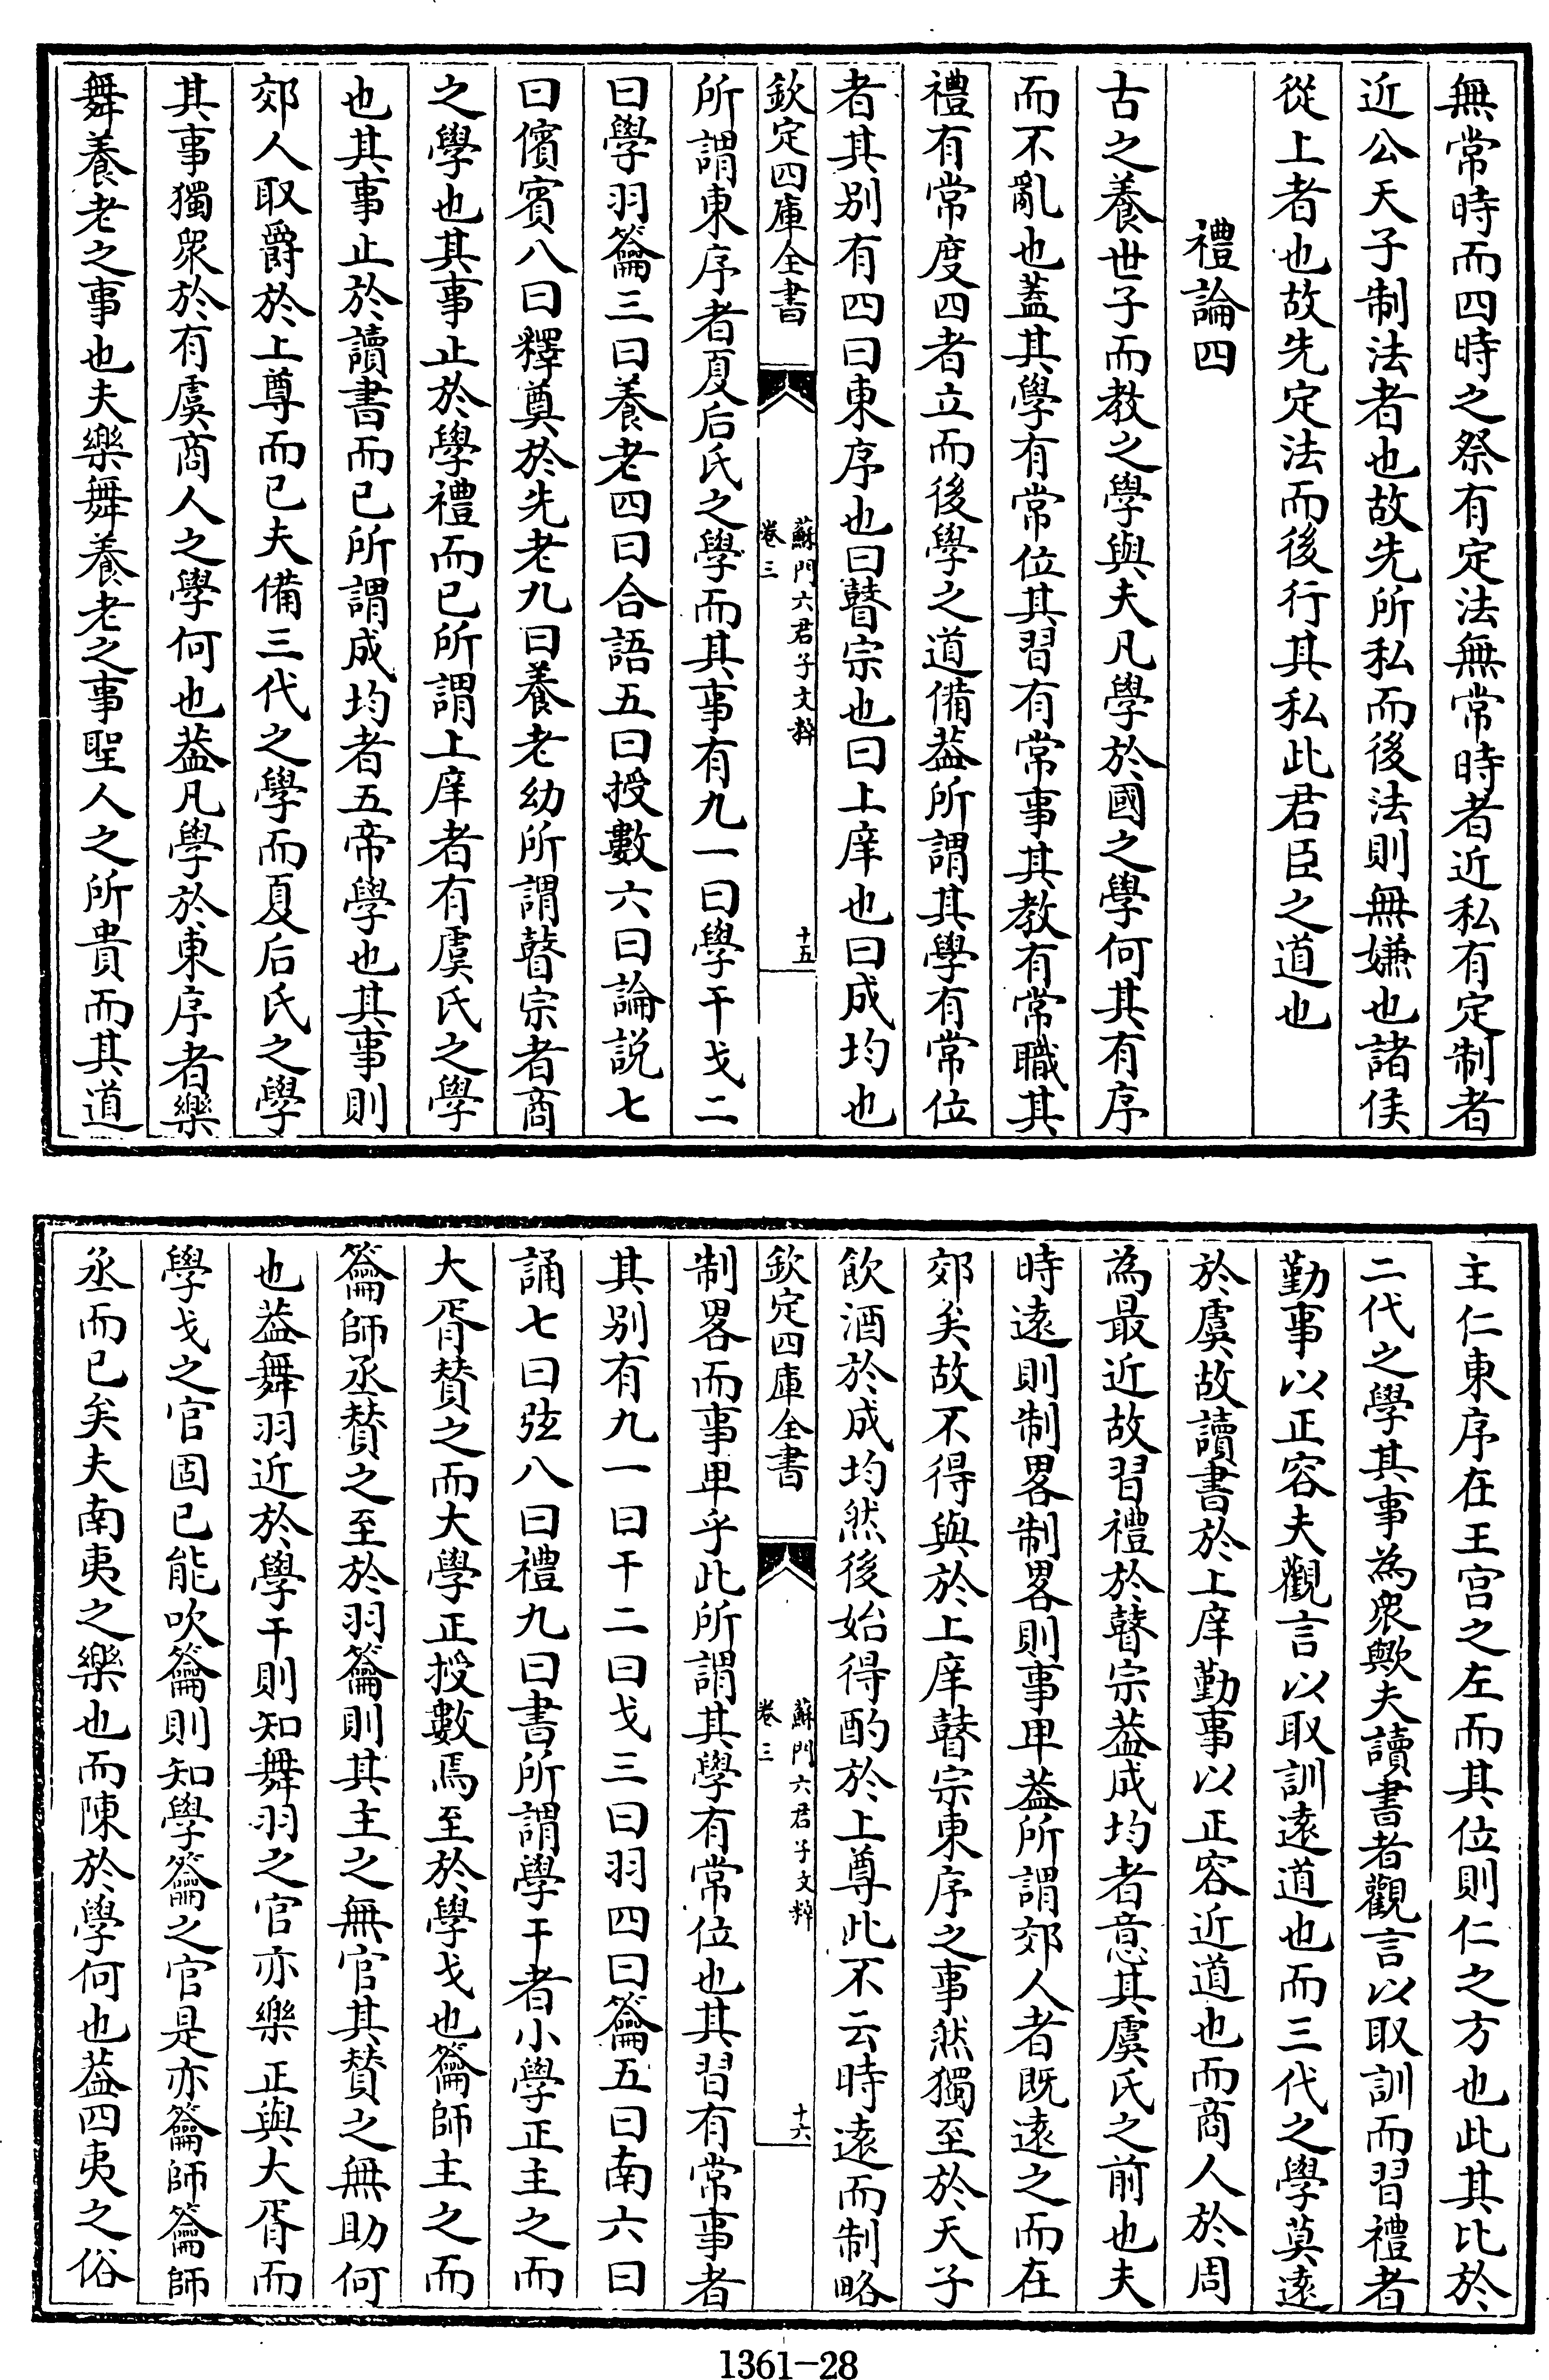 無常時而四時之祭有定法無常時者近私有定制者
近公天子制法者也故先所私而後法則無嫌也諸侯
從上者也故先定法而後行其私此君臣之道也
禮論四
古之養世子而教之學與夫凡學於國之學何其有序
而不亂也蓋其學有常位其習有常事其教有常職其
禮有常度四者立而後學之道備葢所謂其學有常位
者其別有四曰東序也曰瞽宗也曰上庠也曰成均也
欽定四庫全書
蘇門六君子文粹
卷三
十五
所謂東序者夏后氏之學而其事有九一曰學干戈二
曰學羽籥三曰養老四曰合語五曰授數六曰論説七
曰儐賓八曰釋奠於先老九曰養老幼所謂瞽宗者商
之學也其事止於學禮而已所謂上庠者有虞氏之學
也其事止於讀書而已所謂成均者五帝學也其事則
郊人取爵於上尊而已夫備三代之學而夏后氏之學
其事獨衆於有虞商人之學何也葢凡學於東序者樂
舞養老之事也夫樂舞養老之事聖人之所貴而其道
主仁東序在王宫之左而其位則仁之方也此其比於
二代之學其事為衆歟夫讀書者觀言以取訓而習禮者
勤事以正容夫觀言以取訓遠道也而三代之學莫遠
於虞故讀書於上庠勤事以正容近道也而商人於周
為最近故習禮於瞽宗葢成均者意其虞氏之前也夫
時遠則制畧制畧則事卑葢所謂郊人者既遠之而在
郊矣故不得與於上庠瞽宗東序之事然獨至於天子
飲酒於成均然後始得酌於上尊此不云時遠而制略
欽定四庫全書
蘇門六君子文粹
卷三
十六
制畧而事卑乎此所謂其學有常位也其習有常事者
其別有九一曰干二曰戈三曰羽四曰籥五曰南六曰
誦七曰弦八曰禮九曰書所謂學干者小學正主之而
大胥賛之而大學正授數焉至於學戈也籥師主之而
籥師丞賛之至於羽籥則其主之無官其賛之無助何
也葢舞羽近於學干則知舞羽之官亦樂正與大胥而
學戈之官固已能吹籥則知學籥之官是亦籥師籥師
丞而已矣夫南夷之樂也而陳於學何也葢四夷之俗
1361-28